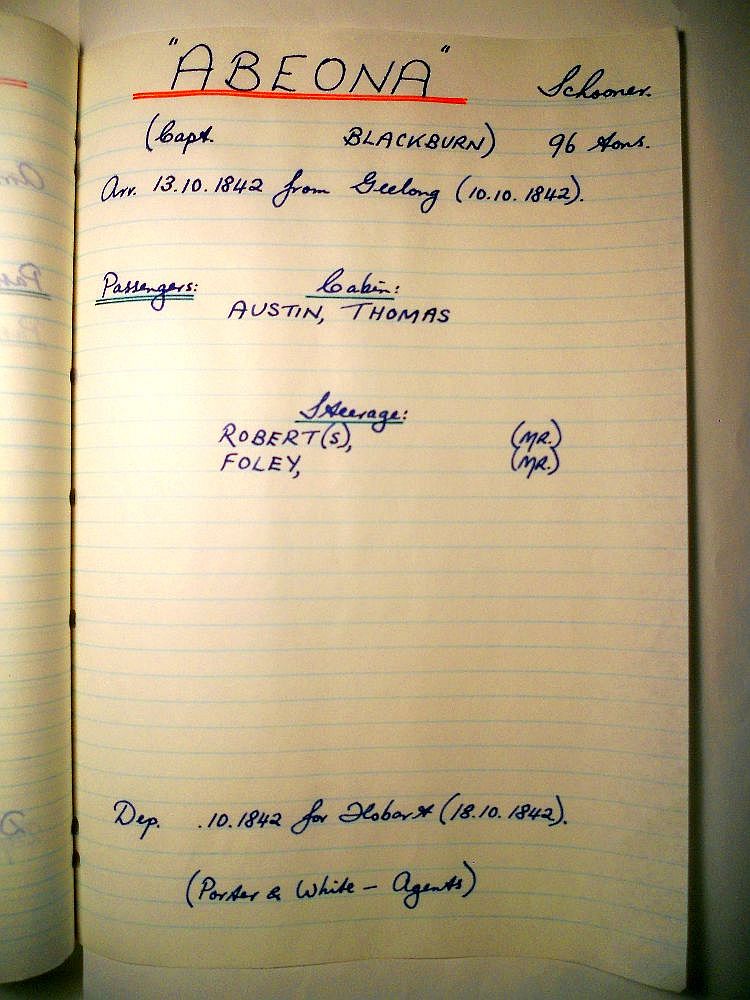 "ABEONA" Schooner.
(Capt. BLACKBURN) 96 tons.
Arr. 13.10.1842 from Geelong (10.10.1842).
Passengers: Cabin:
AUSTIN, THOMAS
Steerage:
ROBERT(S), (MR.)
FOLEY, (MR.)
Dep. .10.1842 for Hobart (18.10.1842).
(Porter & White – Agents)